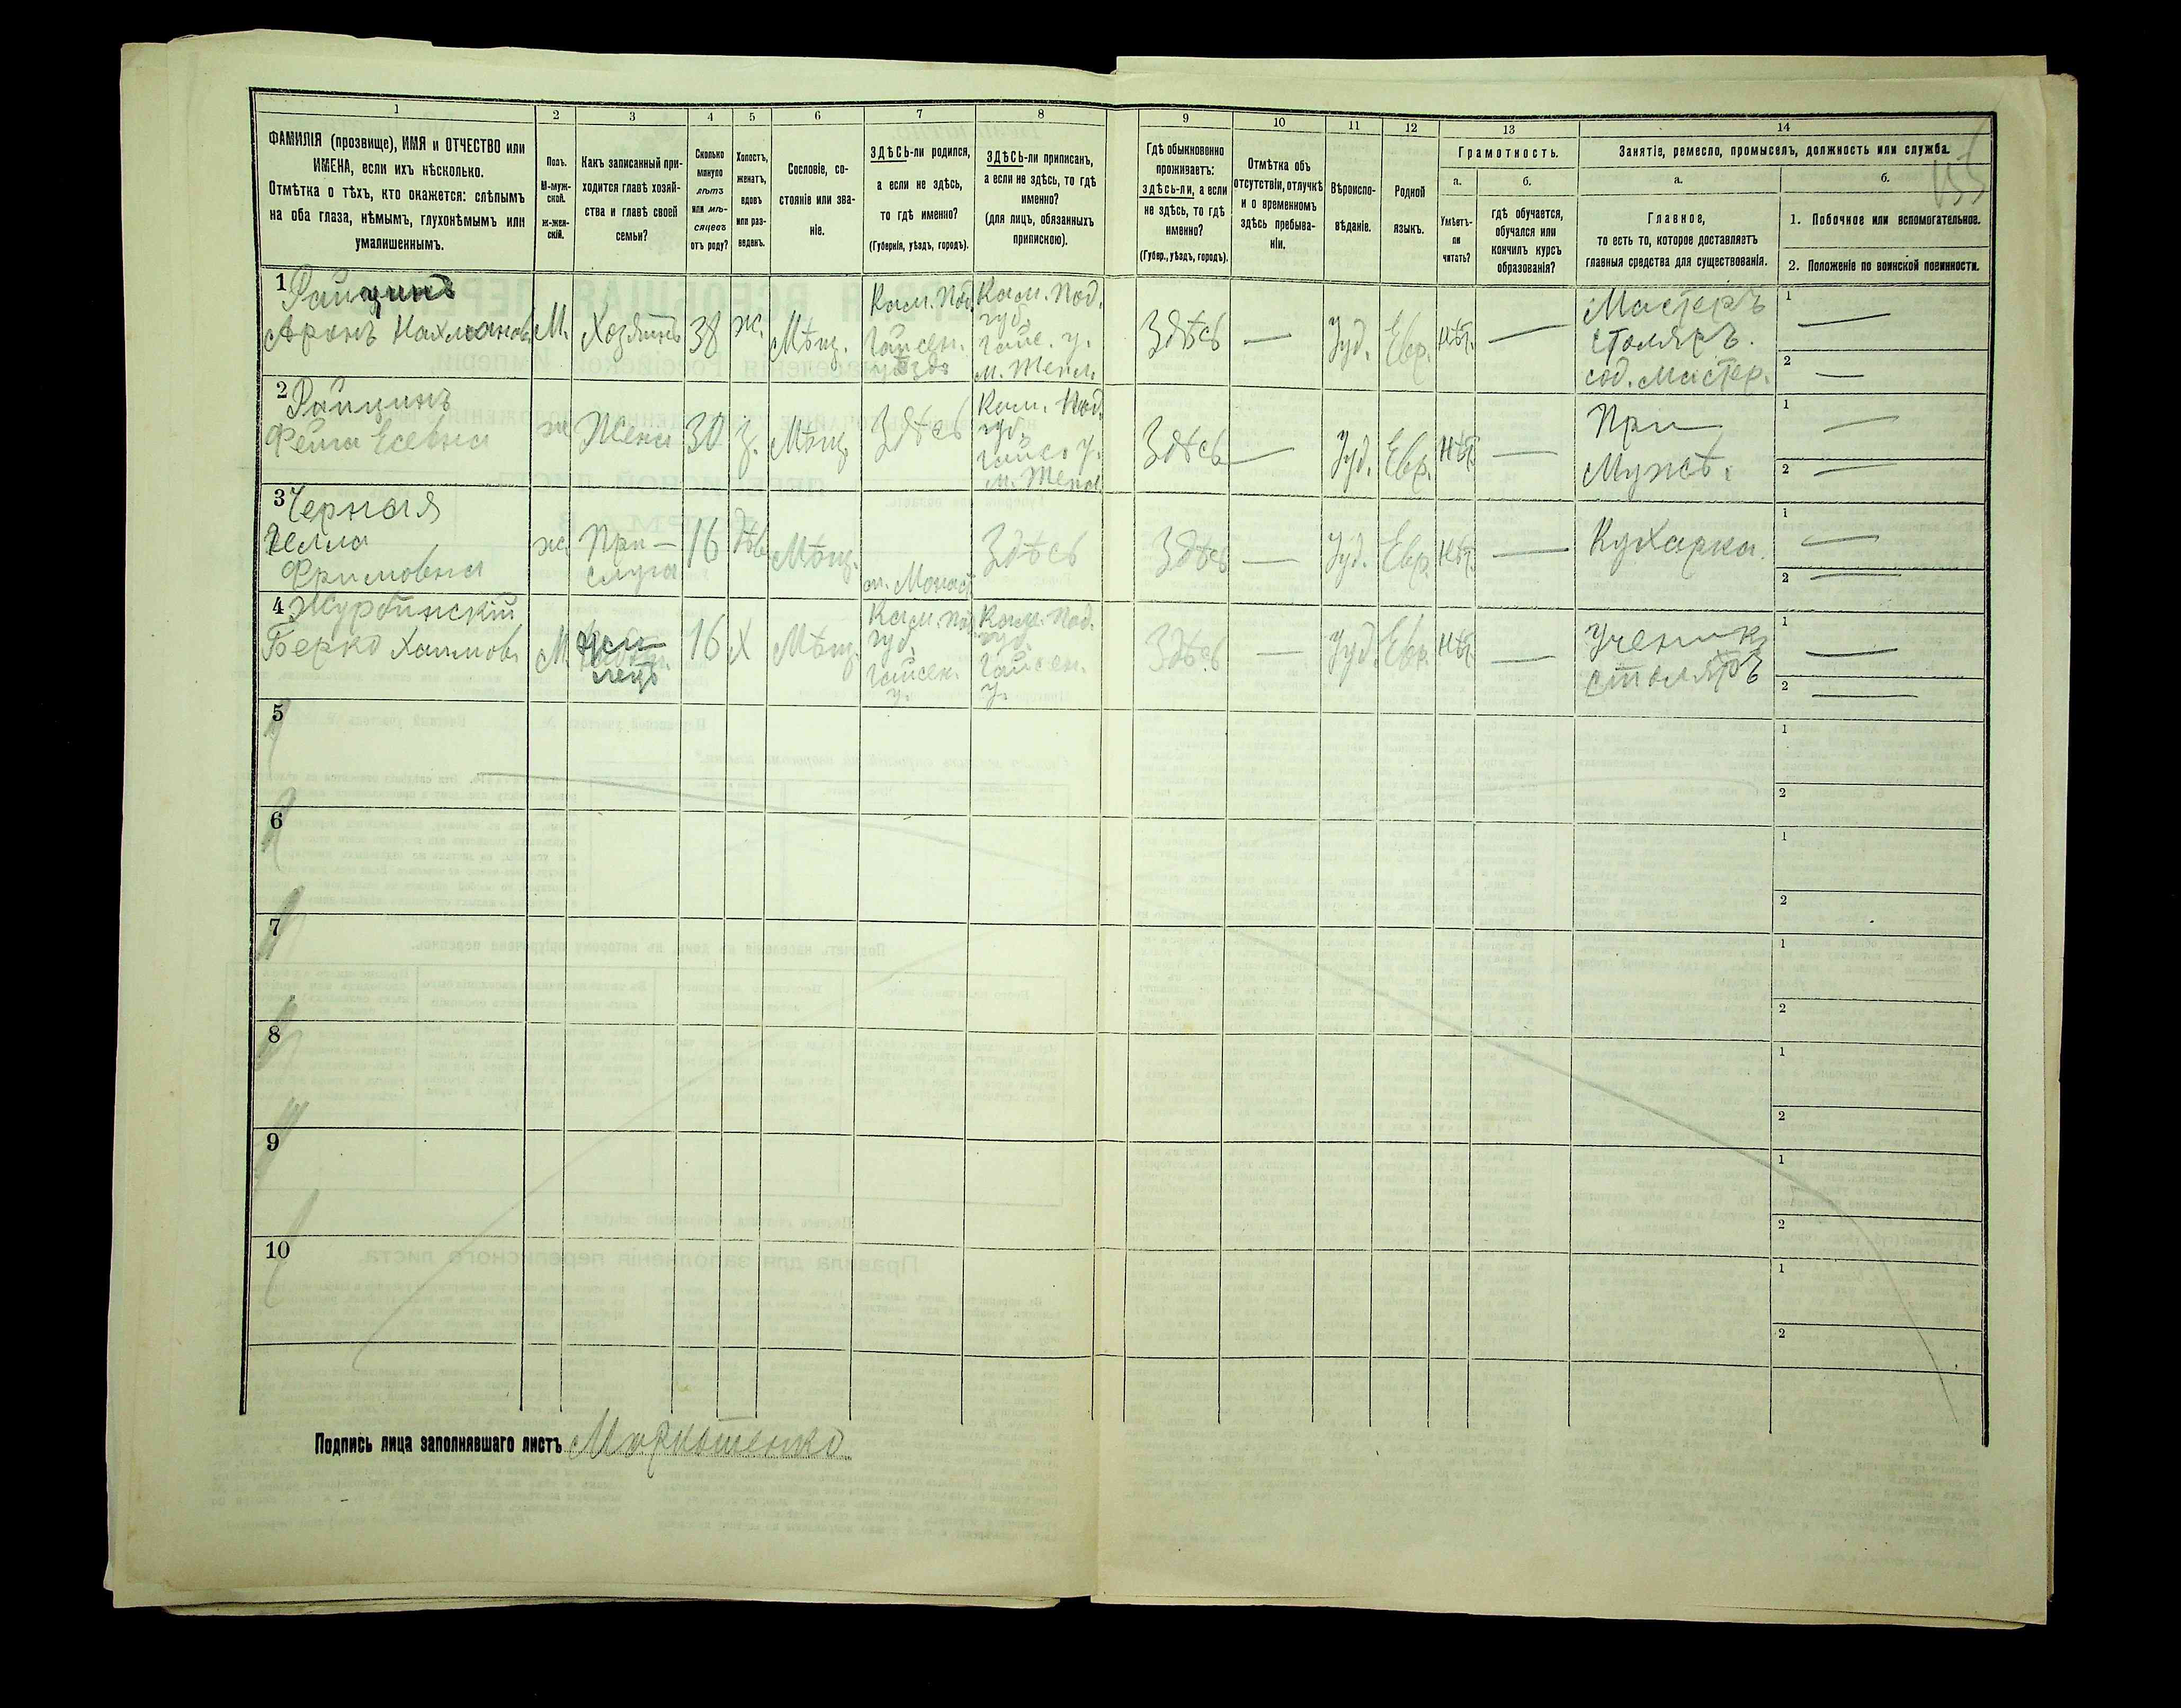 1
2
3
4
5
6
7
8
9
10
11
12
13
14
ФАМИЛІЯ (прозвище), ИМЯ и ОТЧЕСТВО или
ИМЕНА, если ихъ нѣсколько.
Отмѣтка о тѣхъ, кто окажется: слѣпымъ
на оба глаза, нѣмымъ, глухонѣмымъ или
умалишеннымъ.
Полъ.
М-муж-
ской.
ж-жен-
скій.
Какъ записанный при-
ходится главѣ хозяй-
ства и главѣ своей
семьи?
Сколько
минуло
лѣтъ
или мѣ-
сяцевъ
отъ роду?
Холостъ,
женатъ,
вдовъ
или раз-
веденъ.
Сословіе, со-
стояніе или зва-
ніе.
ЗДѢСЬ-ли родился,
а если не здѣсь,
то гдѣ именно?
(Губернія, уѣздъ, городъ).
ЗДѢСЬ-ли приписанъ,
а если не здѣсь, то гдѣ
именно?
(для лицъ, обязанныхъ
припискою).
Гдѣ обыкновенно
проживаетъ:
здѣсь-ли, а если
не здѣсь, то гдѣ
именно?
(Губер., уѣздъ, городъ).
Отмѣтка объ
отсутствіи, отлучкѣ
и о временномъ
здѣсь пребыва-
ніи.
Вѣроиспо-
вѣданіе.
Родной
языкъ.
Грамотность.
а.
Умѣетъ-
ли
читать?
б.
гдѣ обучается,
обучался или
кончилъ курсъ
образованія?
Занятіе, ремесло, промыселъ, должность или служба.
а.
Главное,
то есть то, которое доставляетъ
главныя средства для существованія.
б.
1. Побочное или вспомогательное.
2. Положеніе по воинской повинности.
1
Аронъ Нахманов
М.
Хозяинъ
38
ж.
Мѣщ.
Кам. Под.
Гайсен.
уѣзда
Кам. Под.
губ.
Гайс. у.
м. Тепл.
Здѣсь
—
Іуд.
Евр.
нѣт.
—
Мастеръ
столяръ.
сод. мастер.
1 —
2 —
2
Фейга Есевна
ж
Жена
30
З.
Мѣщ.
Здѣсь
Кам. Под.
губ.
Гайс. у.
м. Тепл.
Здѣсь
—
Іуд.
Евр.
нѣт.
—
При
Мужѣ.
1 —
2 —
3 Черная
ж.
При-
слуга
16
дѣв.
Мѣщ.
Здѣсь
Здѣсь
—
Іуд.
Евр.
нѣт.
—
Кухарка.
1 —
2 —
4
Берко Хаимов
М.
16
Х
Мѣщ.
Кам. Под.
губ.
Гайсен.
у.
Кам. Под.
губ.
Гайсен.
у.
Здѣсь
—
Іуд.
Евр.
нѣт.
—
Ученик
столяръ
1 —
2 —
5
1
2
6
1
2
7
1
2
8
1
2
9
1
2
10
1
2
Подпись лица заполнявшаго листъ